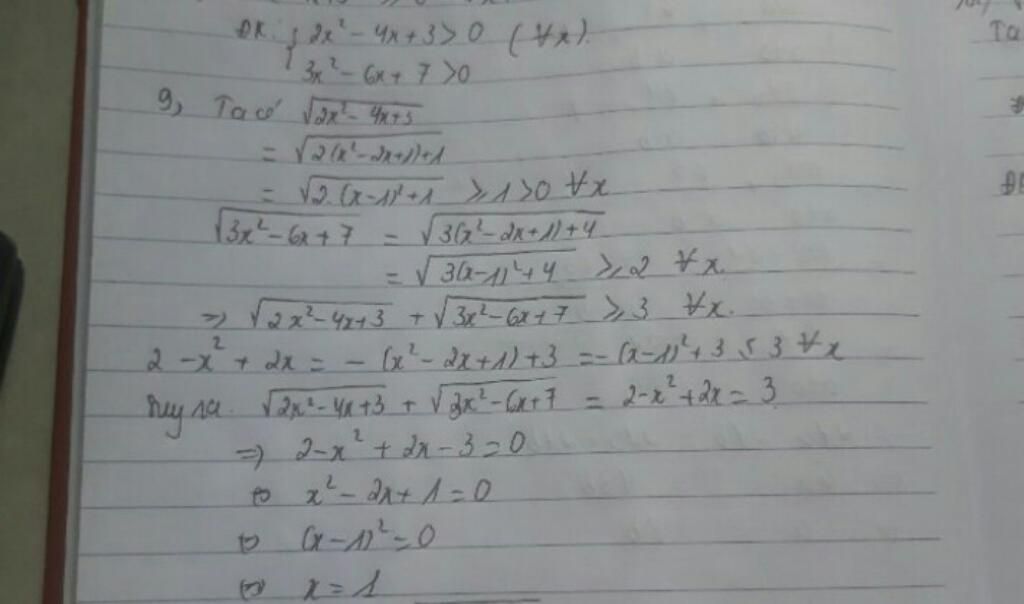 ĐK: { 2x² - 4x + 3 > 0 (∀x).
3x² - 6x + 7 > 0
9, Ta có √(2x² - 4x + 3)
= √(2(x² - 2x + 1) + 1)
= √(2.(x - 1)² + 1) ≥ 1 > 0 ∀x
√(3x² - 6x + 7) = √(3(x² - 2x + 1) + 4)
= √(3(x - 1)² + 4) ≥ 2 ∀x.
=> √(2x² - 4x + 3) + √(3x² - 6x + 7) ≥ 3 ∀x.
2 - x² + 2x = - (x² - 2x + 1) + 3 = - (x - 1)² + 3 ≤ 3 ∀x
√(2x² - 4x + 3) + √(3x² - 6x + 7) = 2 - x² + 2x = 3
=> 2 - x² + 2x - 3 = 0
⇔ x² - 2x + 1 = 0
⇔ (x - 1)² = 0
⇔ x = 1
Ta